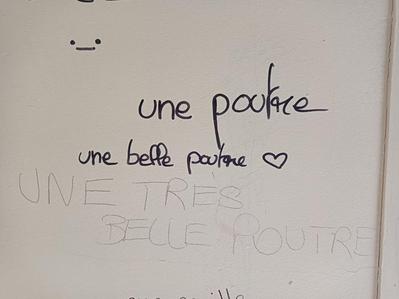 une poutre
une belle poutre ♡
UNE TRÈS
BELLE POUTRE